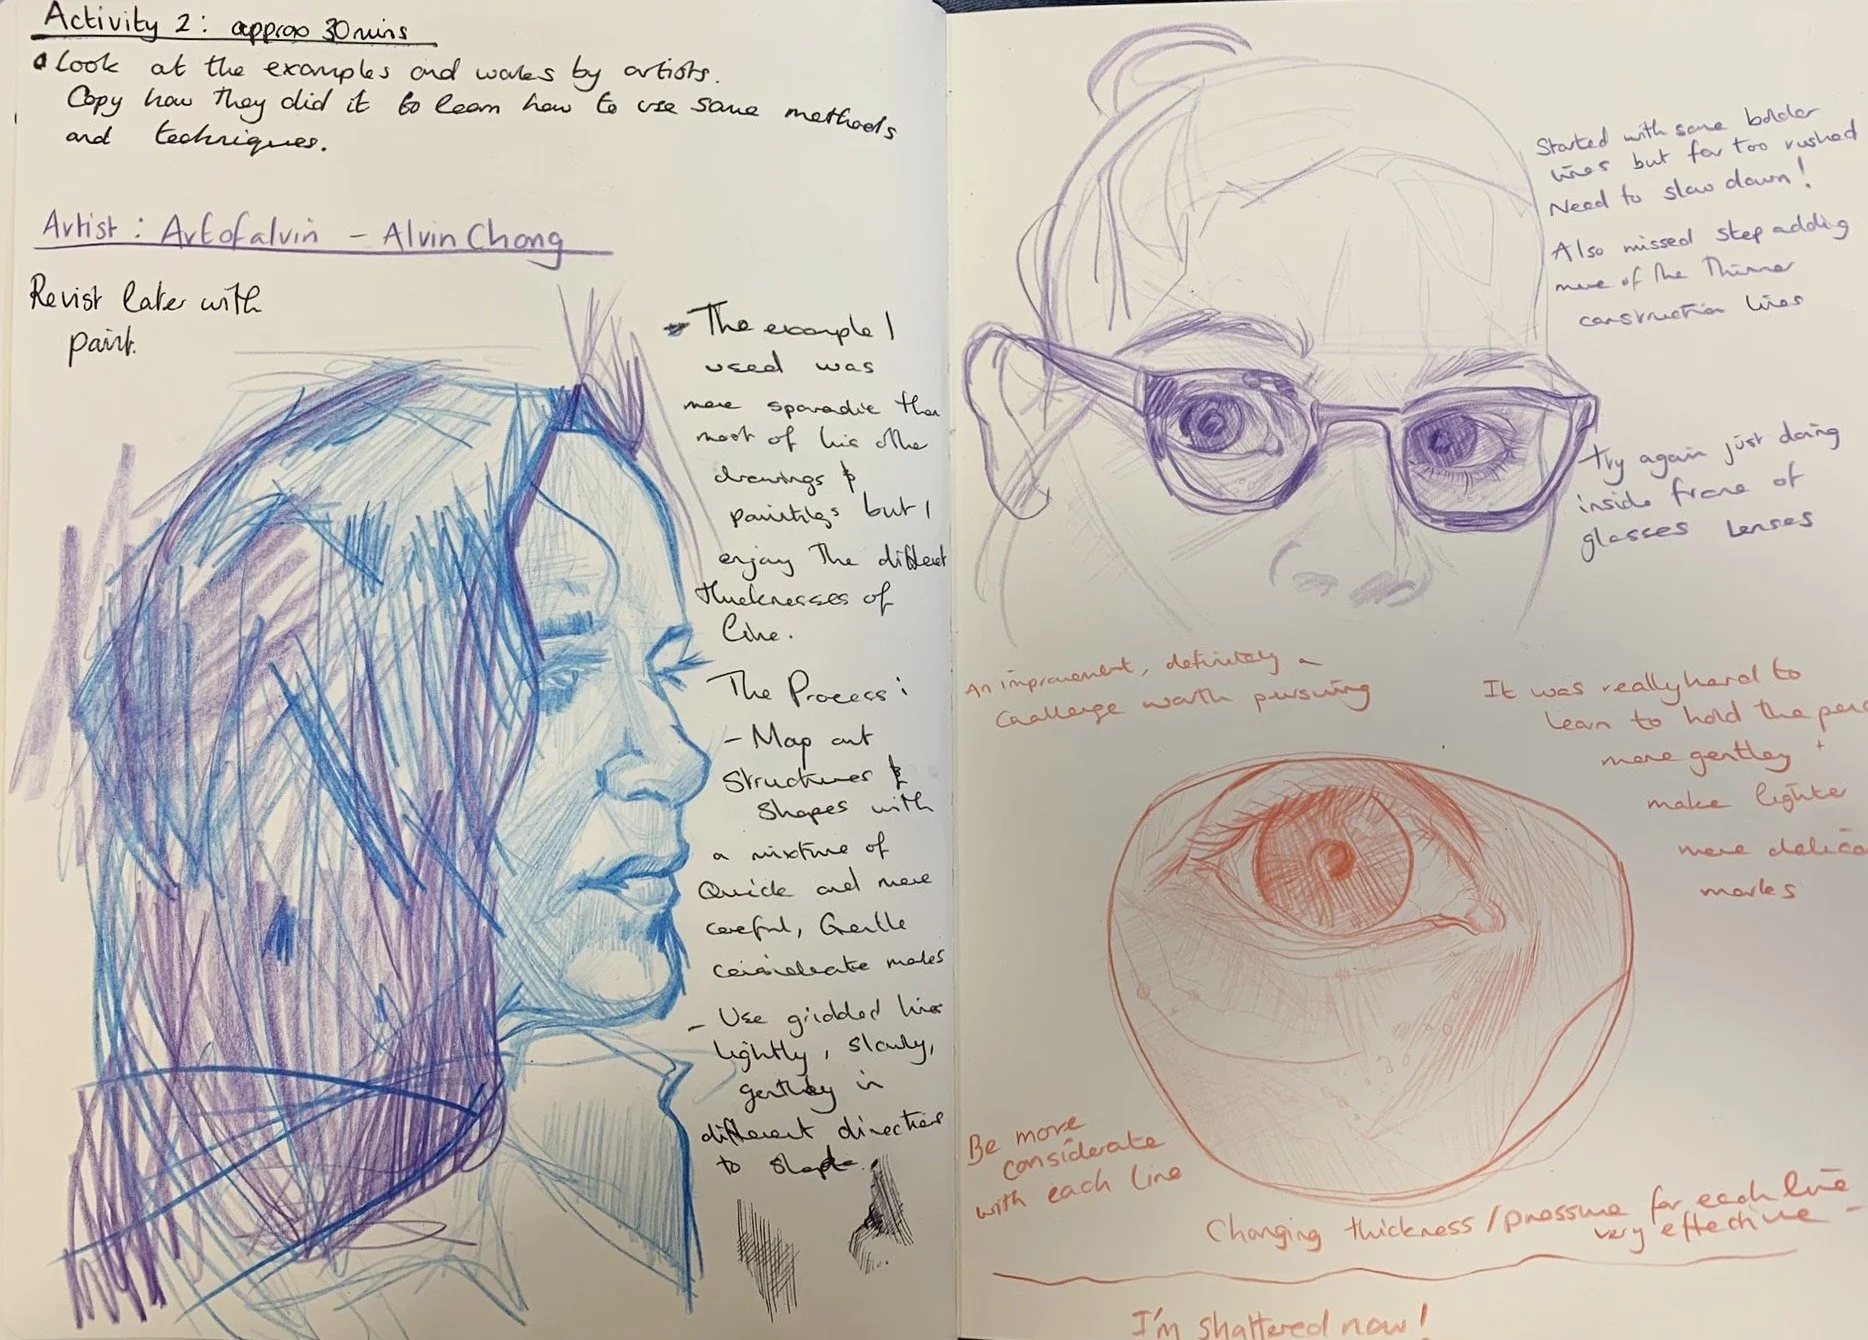 Activity 2: approx 30mins
Look at the examples and works by artists.
Copy how they did it to learn how to use same methods
and techniques.
Artist: Artofalvin - Alvin Chong
Revist later with
paint.
The example I
used was
more sporadic than
most of his othe
drawings &
paintings but I
enjoy the different
thicknesses of
line.
The Process:
- Map out
structures &
shapes with
a mixture of
Quick and more
careful, Gentle
considerate marks
- Use gridded lines
lightly, slowly,
gentley in
different directions
to shape.
Started with some bolder
lines but far too rushed
Need to slow down!
Also missed step adding
more of the thinner
construction lines
try again just doing
inside frame of
glasses lenses
An improvement, definitely a
challenge worth pursuing
It was really hard to
learn to hold the penc
more gentley +
make lighter
more delica
marks
Be more
considerate
with each line
Changing thickness/pressure for each line
very effective -
I'm shattered now!